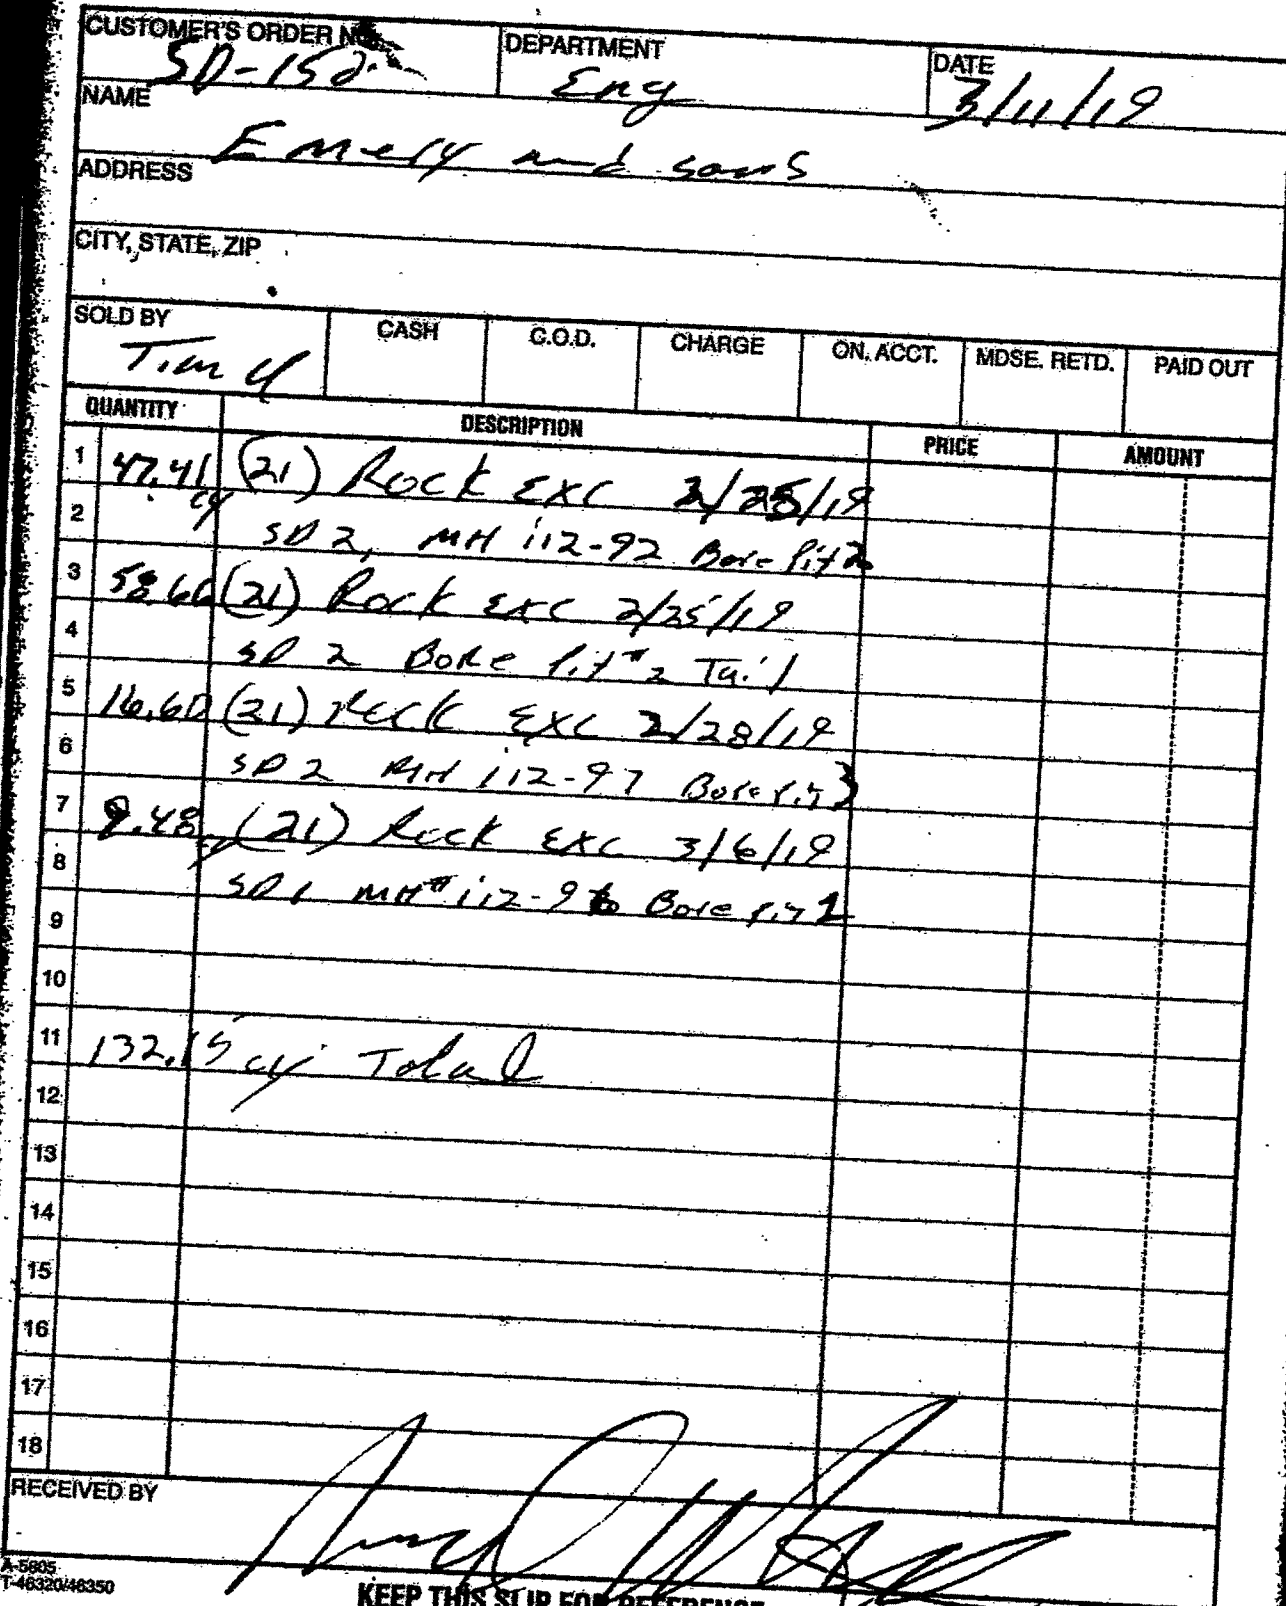 CUSTOMER'S ORDER NO. DEPARTMENT DATE
SD-152 Eng 3/11/19
NAME
Emery and sons
ADDRESS
CITY, STATE, ZIP
SOLD BY CASH C.O.D. CHARGE ON. ACCT. MDSE. RETD. PAID OUT
Tim y
QUANTITY DESCRIPTION PRICE AMOUNT
1 47.41 (21) Rock Exc 2/28/19
2 cy SD 2, MH i12-92 Bore Pit 2
3 58.66 (21) Rock Exc 2/25/19
4 SD 2 Bore Pit #2 Tail
5 16.60 (21) Rock Exc 2/28/19
6 SD 2 MH i12-97 Bore Pit 3
7 9.48 (21) Rock Exc 3/6/19
8 cy SD 1 MH# i12-96 Bore Pit 1
9
10
11 132.15 cy Total
12
13
14
15
16
17
18
RECEIVED BY
A-5805
T-46320/46350
KEEP THIS SLIP FOR REFERENCE